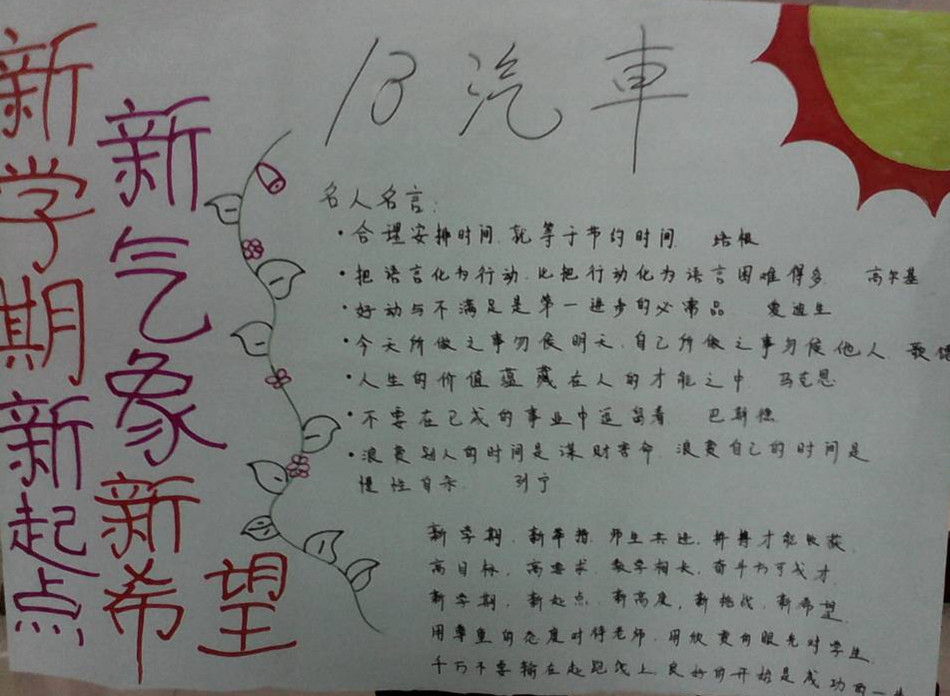 新学期新起点
新气象
新希望
13汽車
名人名言:
·合理安排时间,就等于节约时间 培根
·把语言化为行动,比把行动化为语言困难得多 高尔基
·好动与不满足是第一进步的必需品 爱迪生
·今天所做之事勿候明天,自己所做之事勿候他人 歌德
·人生的价值蕴藏在人的才能之中 马克思
·不要在已成的事业中逗留着 巴斯德
·浪费别人的时间是谋财害命,浪费自己的时间是
慢性自杀 列宁
新学期,新举措,师生共进,拼搏才能收获,
高目标,高要求,教学相长,奋斗方可成才.
新学期,新起点,新高度,新挑战,新希望
用尊重的态度对待老师,用欣赏的眼光对学生,
千万不要输在起跑线上,良好的开始是成功的一